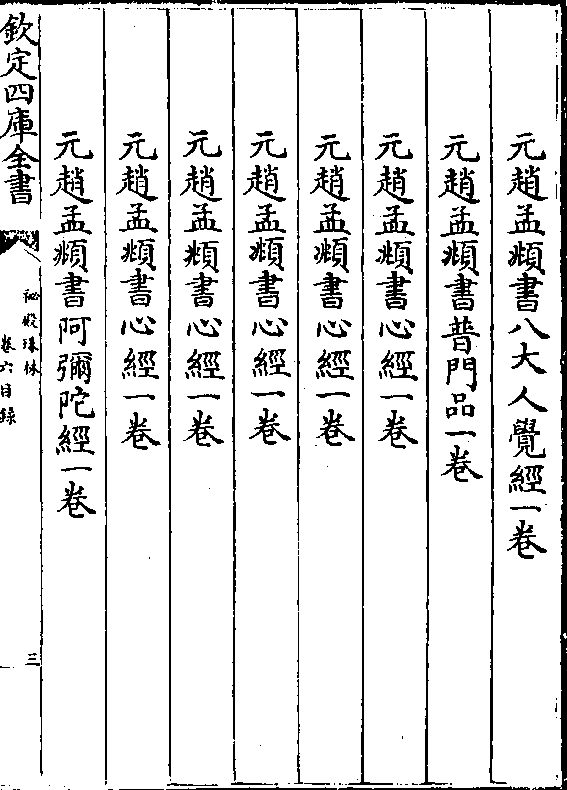 元趙孟頫書八大人覺經一卷
元趙孟頫書普門品一卷
元趙孟頫書心經一卷
元趙孟頫書心經一卷
元趙孟頫書心經一卷
元趙孟頫書心經一卷
元趙孟頫書心經一卷
元趙孟頫書阿彌陀經一卷
欽定四庫全書
秘殿珠林
卷六目錄
三